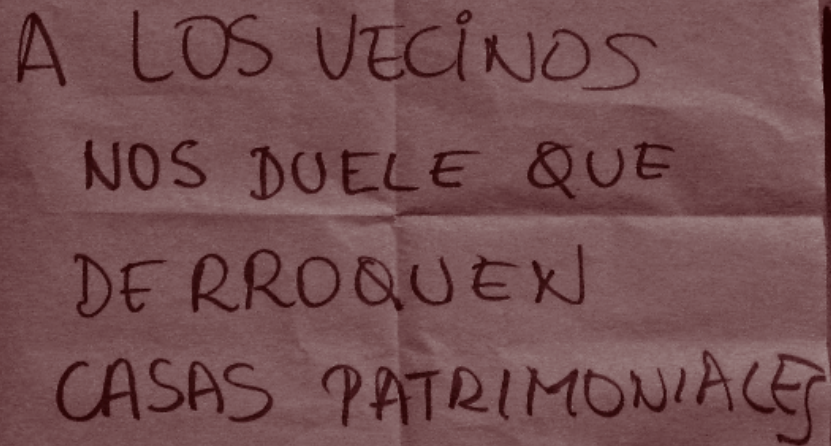 A LOS VECINOS
NOS DUELE QUE
DERROQUEN
CASAS PATRIMONIALES